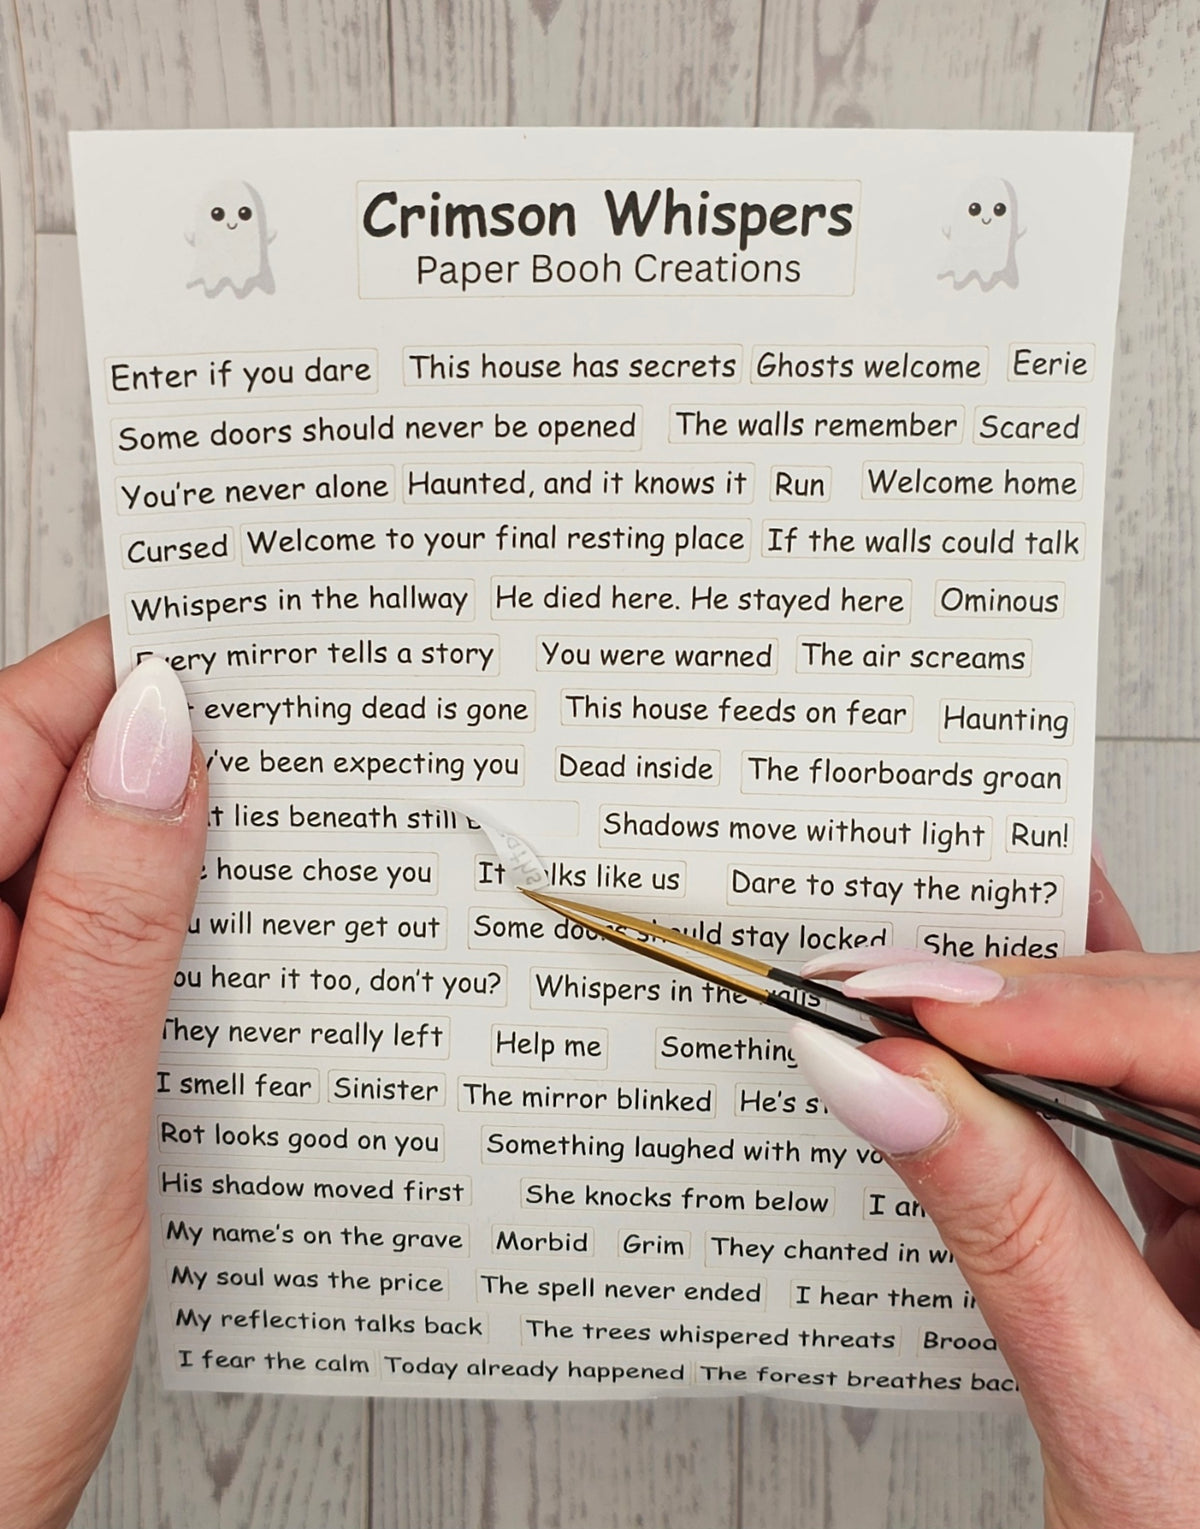 Crimson Whispers
Paper Booh Creations
Enter if you dare This house has secrets Ghosts welcome Eerie
Some doors should never be opened The walls remember Scared
You're never alone Haunted, and it knows it Run Welcome home
Cursed Welcome to your final resting place If the walls could talk
Whispers in the hallway He died here. He stayed here Ominous
Every mirror tells a story You were warned The air screams
everything dead is gone This house feeds on fear Haunting
been expecting you Dead inside The floorboards groan
lies beneath still Shadows move without light Run!
house chose you It like us Dare to stay the night?
will never get out Some doors should stay locked She hides
hear it too, don't you? Whispers in the walls
They never really left Help me Something
I smell fear Sinister The mirror blinked He's
Rot looks good on you Something laughed with my
His shadow moved first She knocks from below I
My name's on the grave Morbid Grim They chanted in
My soul was the price The spell never ended I hear them
My reflection talks back The trees whispered threats
I fear the calm Today already happened The forest breathes